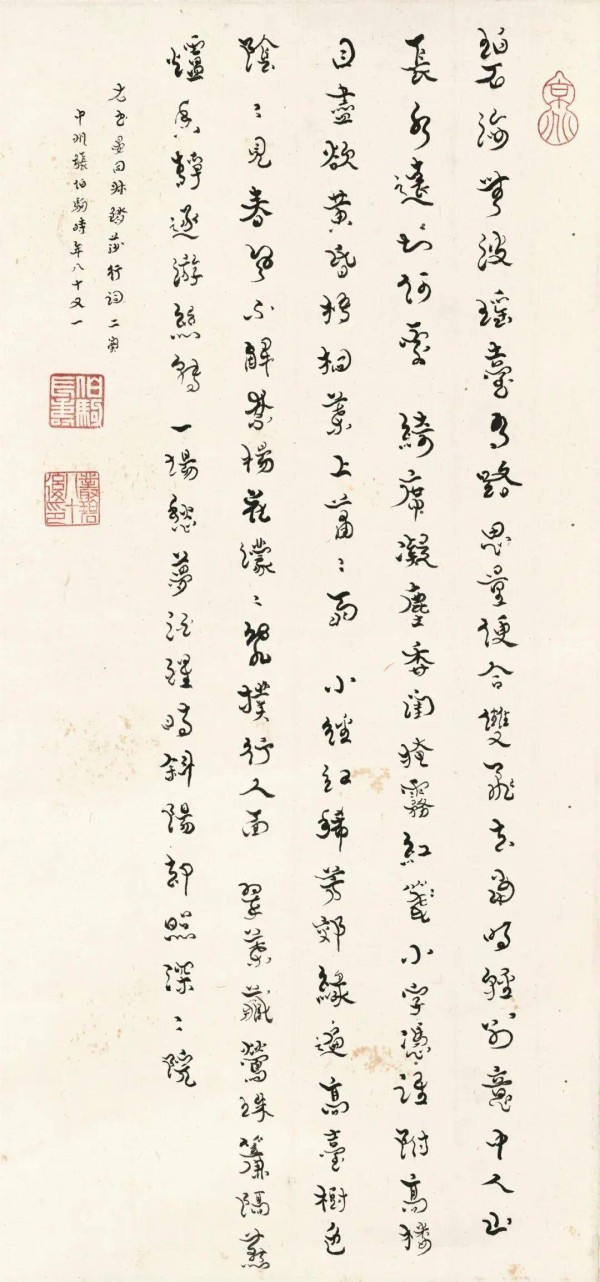 京兆
碧海無波瑤臺有路思量便合雙飛去當時輕別意中人山
長水遠知何處 綺席凝塵香閨掩霧紅箋小字憑誰附高樓
目盡欲黃昏梧桐葉上蕭〻雨 小徑紅稀芳郊綠遍高臺樹色
陰〻見春風不解禁楊花濛〻亂撲行人面 翠葉藏鶯珠簾隔燕
爐香靜逐游絲轉一場愁夢酒醒時斜陽卻照深〻院
右書晏同叔踏莎行詞二闋
中州張伯駒時年八十又一
伯駒長壽
叢碧八十後印